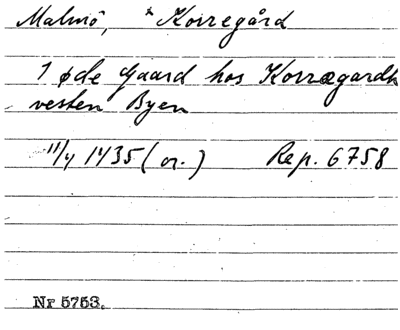 Malmö, * Korregård
1 øde Gaard hos Korrægardh
vesten Byen
11/4 1435 (or.) Rep. 6758
Nr 5753.